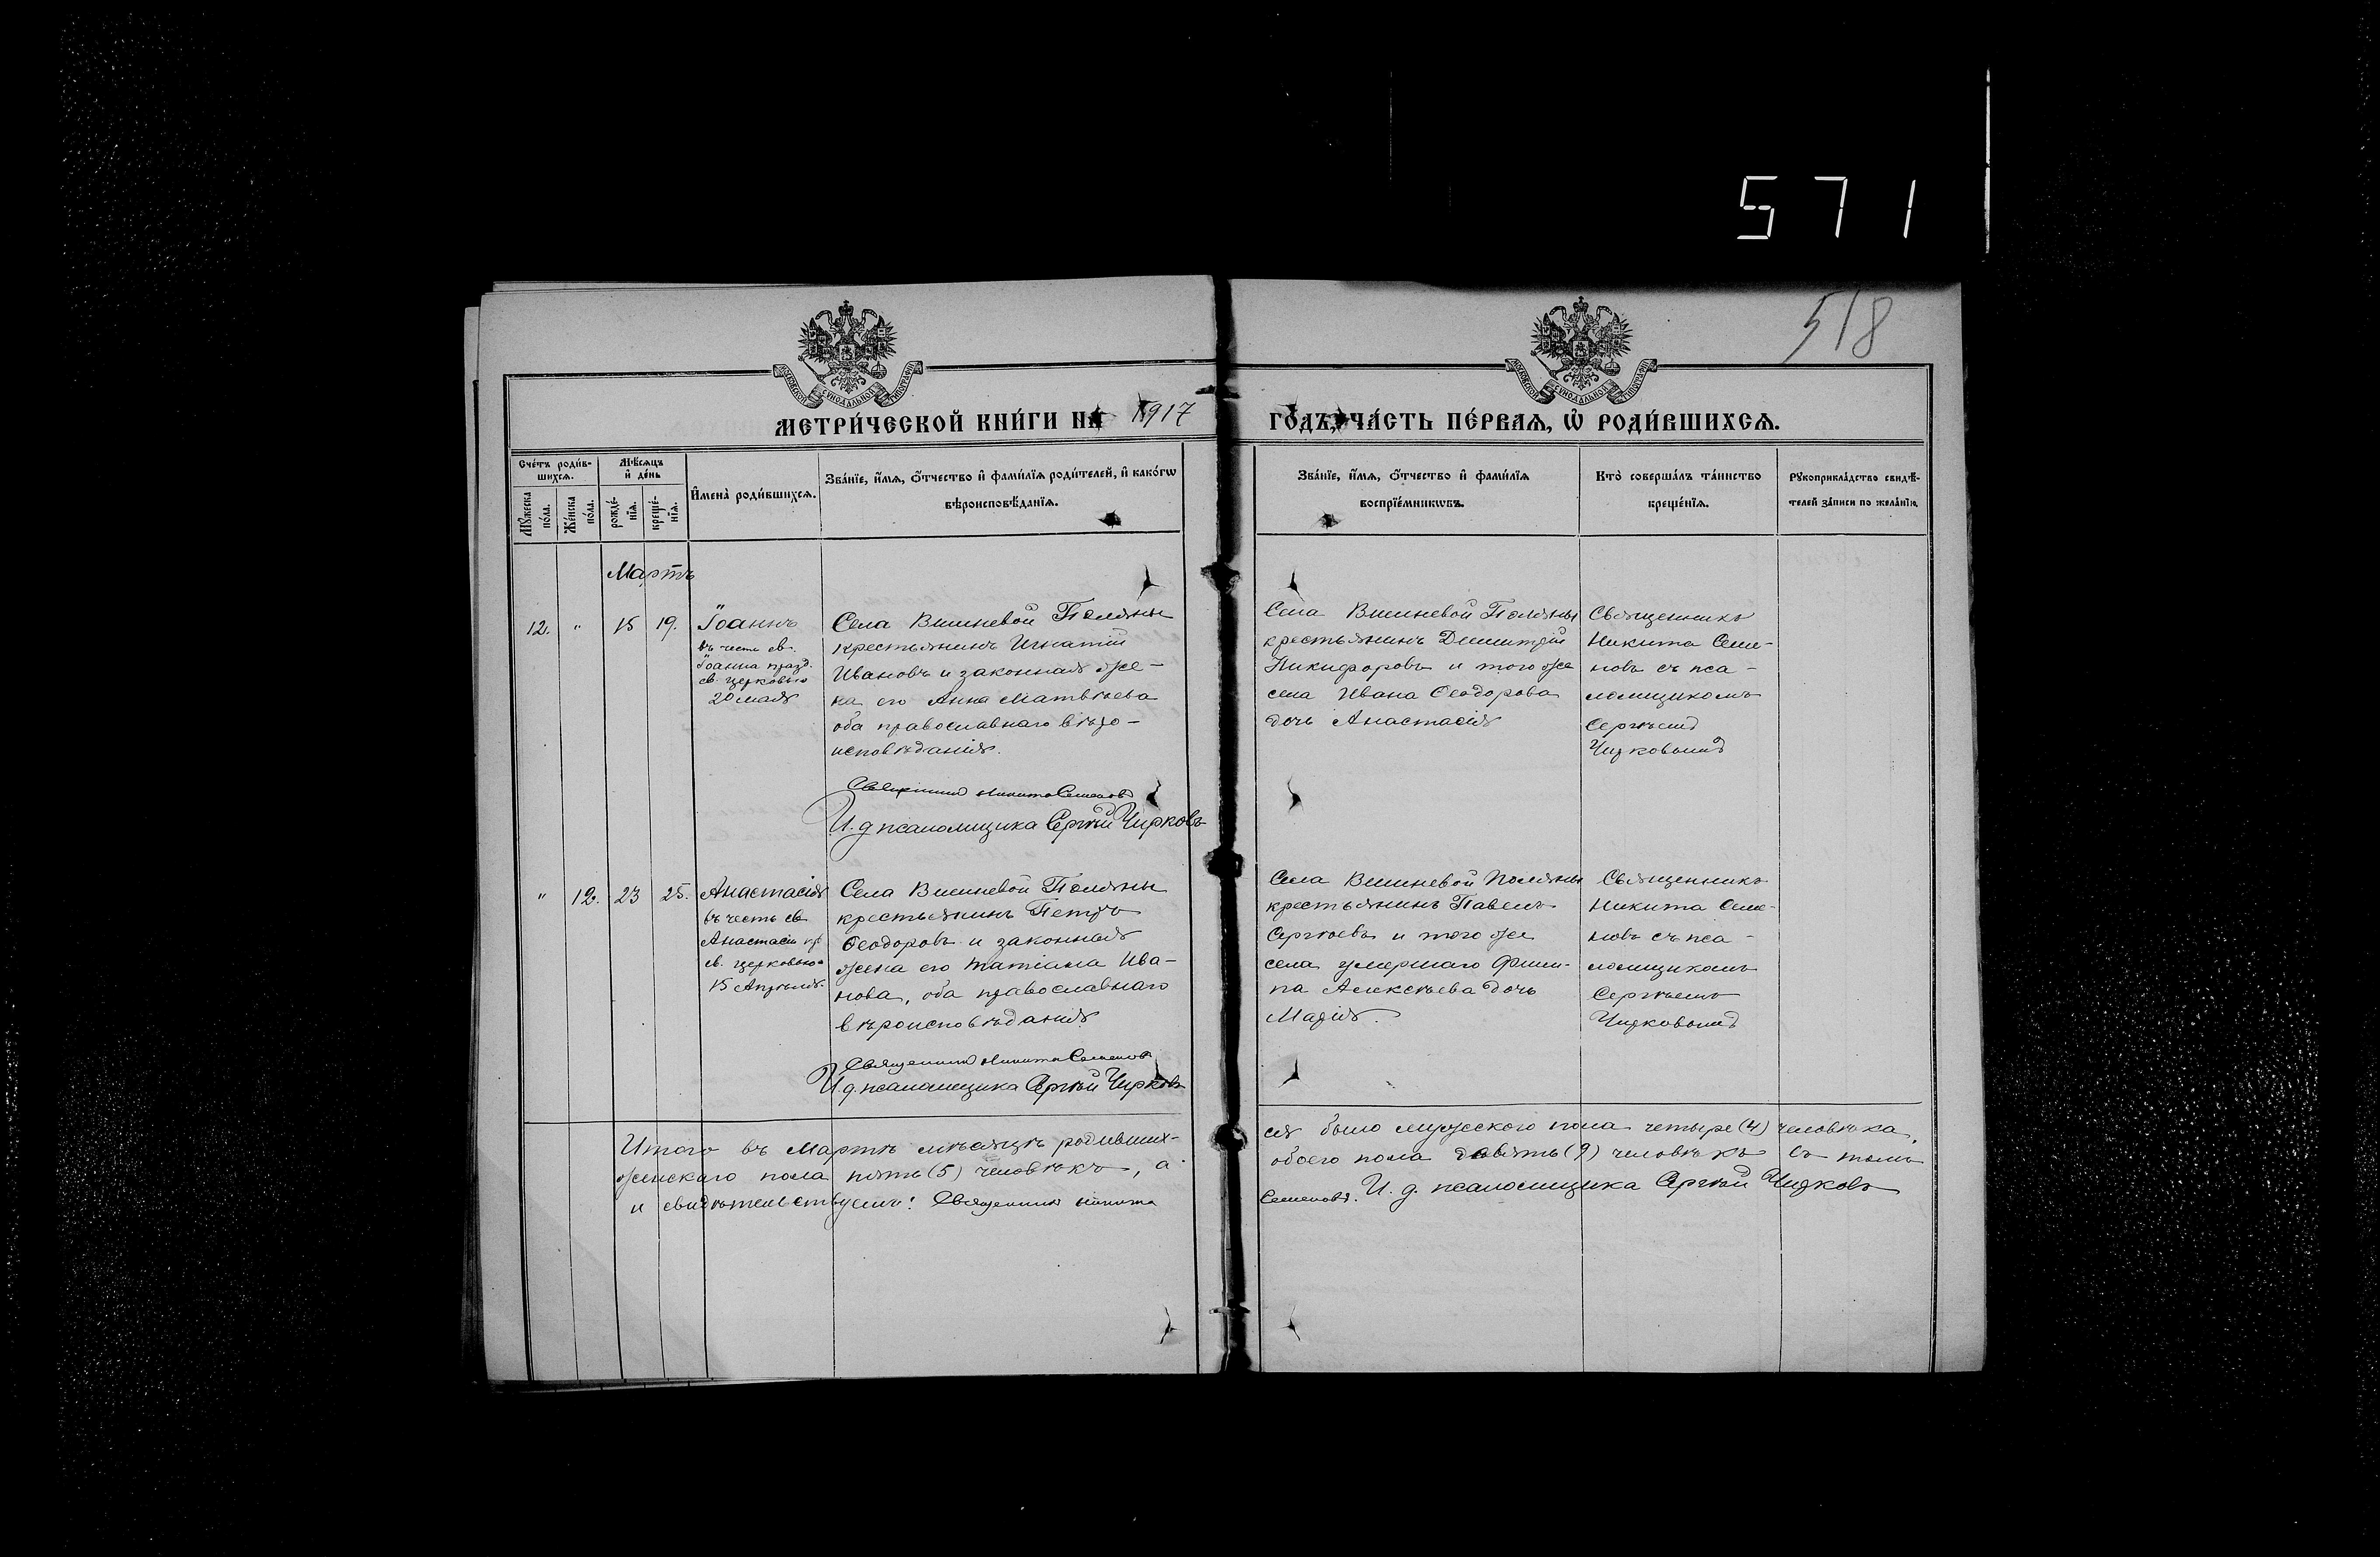 571
518
МОСКОВСКОЙ СѴНОДАЛЬНОЙ ТИПОГРАФІИ
МОСКОВСКОЙ СѴНОДАЛЬНОЙ ТИПОГРАФІИ
МЕТРИ́ЧЕСКОЙ КНИ́ГИ НА 1917
ГО́ДЪ, ЧА́СТЬ ПЕ́РВАѦ, Ѡ҆ РОДИ́ВШИХСѦ.
Сче́тъ роди́в-
шихсѧ.
Мѣ́сѧцъ
и҆ де́нь
Мꙋ́жеска
по́ла.
Же́нска
по́ла.
рожде́-
нїѧ.
креще́-
нїѧ.
И҆мена̀ роди́вшихсѧ.
Зва́нїе, и҆́мѧ, ѻ҆́тчество и҆ фами́лїѧ роди́телей, и҆ како́гѡ
вѣроисповѣ́данїѧ.
Зва́нїе, и҆́мѧ, ѻ҆́тчество и҆ фами́лїѧ
воспрїе́мникѡвъ.
Кто̀ соверша́лъ та́инство
креще́нїѧ.
Рꙋкоприкла́дство свидѣ́-
телей за́писи по жела́нїю.
Мартъ
12. " 15 19.
Іоаннъ
въ честь св.
Іоанна празд.
св. церковью
20 мая
Села Вишневой Поляны
крестьянинъ Игнатій
Ивановъ и законная же-
на его Анна Матвѣева
оба православнаго вѣро-
исповѣданія.
Священникъ Никита Семеновъ
И. д. псаломщика Сергѣй Чирковъ
Села Вишневой Поляны
крестьянинъ Димитрій
Никифоровъ и того же
села Ивана Ѳеодорова
дочь Анастасія
Священникъ
Никита Семе-
новъ съ пса-
ломщикомъ
Сергѣемъ
Чирковымъ
" 12. 23 25.
Анастасія
въ честь св.
Анастасіи пр.
св. церковью
15 Апрѣля.
Села Вишневой Поляны
крестьянинъ Петръ
Ѳеодоровъ и законная
жена его Татіана Ива-
нова, оба православнаго
вѣроисповѣданія.
Священникъ Никита Семеновъ
И. д. псаломщика Сергѣй Чирковъ
Села Вишневой Поляны
крестьянинъ Павелъ
Сергѣевъ и того же
села умершаго Филип-
па Алексѣева дочь
Марія.
Священникъ
Никита Семе-
новъ съ пса-
ломщикомъ
Сергѣемъ
Чирковымъ
Итого въ Мартѣ мѣсяцѣ родивших-
ся было мужеского пола четыре (4) человѣка,
женскаго пола пять (5) человѣкъ, а
обоего пола девять (9) человѣкъ въ томъ
и свидѣтельствуемъ: Священникъ Никита
Семеновъ. И. д. псаломщика Сергѣй Чирковъ